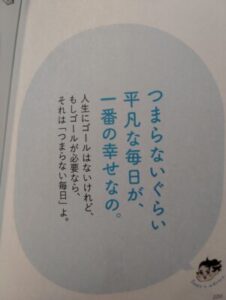 つまらないぐらい
平凡な毎日が、
一番の幸せなの。
人生にゴールはないけれど、
もしゴールが必要なら、
それは「つまらない毎日」よ。